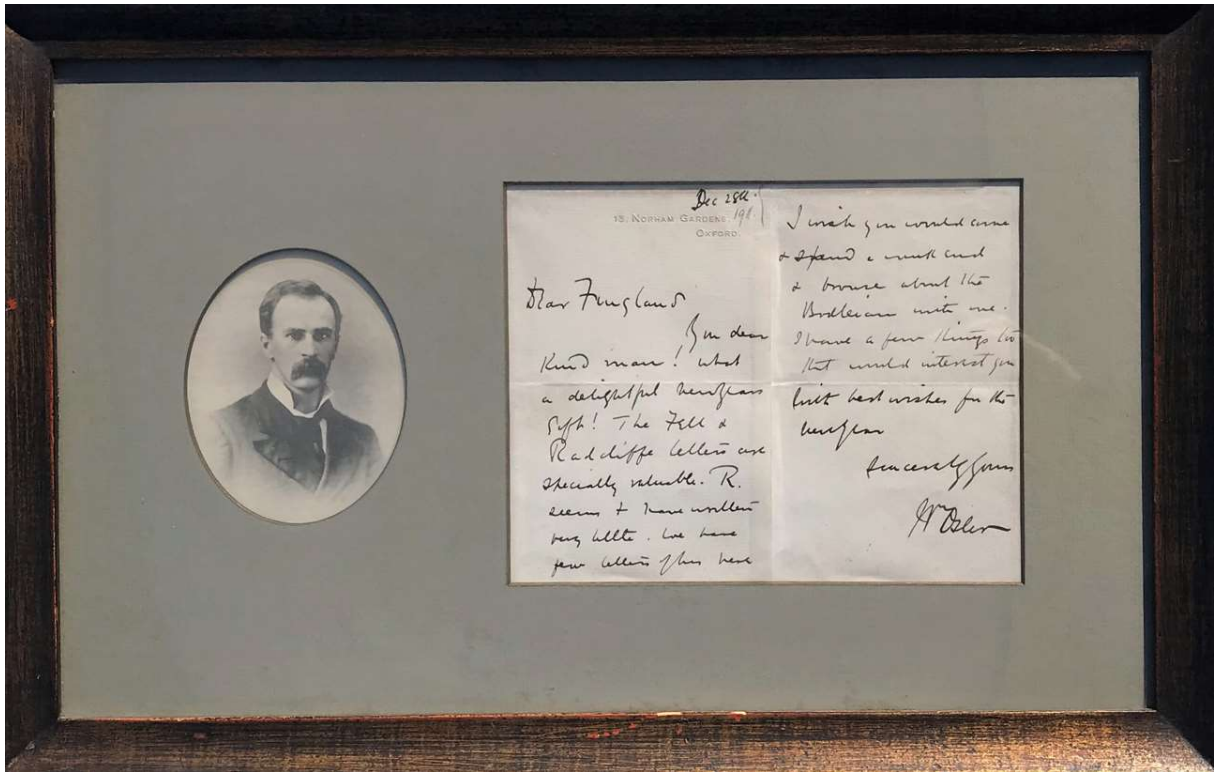 Dec 28th
13, NORHAM GARDENS,
OXFORD.
Dear
You dear
Kind man! What
a delightful New Years
Gift! The Fell &
Radcliffe letters are
specially valuable. R.
seems to have written
very little. We have
few letters of his here
I wish you would come
& spend a week end
& browse about the
Bodleian with me.
I have a few things too
that would interest you
With best wishes for the
New Year
Sincerely yours
Wm Osler